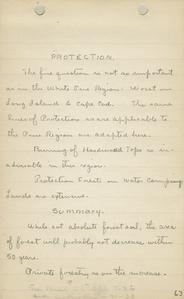 PROTECTION.
The fire question is not as important
as in the White Pine Region. Worst on
Long Island & Cape Cod. The same
lines of Protection as are applicable to
the Pine Region are adapted here.
Burning of Hardwood Tops is in-
advisable in this region.
Protection Forests on Water Company
Lands are extensive.
Summary.
While not absolute forest soil, the area
of forest will probably not decrease within
50 years.
Private forestry is on the increase.
63